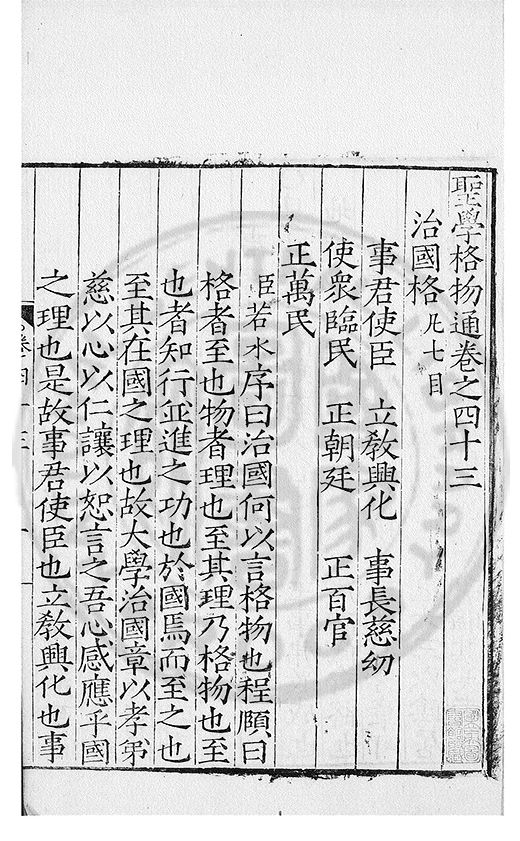 聖學格物通卷之四十三
治國格 凡七目
事君使臣 立敎興化 事長慈幼
使衆臨民 正朝廷 正百官
正萬民
臣若水序曰治國何以言格物也程頤曰
格者至也物者理也至其理乃格物也至
也者知行竝進之功也於國焉而至之也
至其在國之理也故大學治國章以孝弟
慈以心以仁讓以恕言之吾心感應乎國
之理也是故事君使臣也立敎興化也事